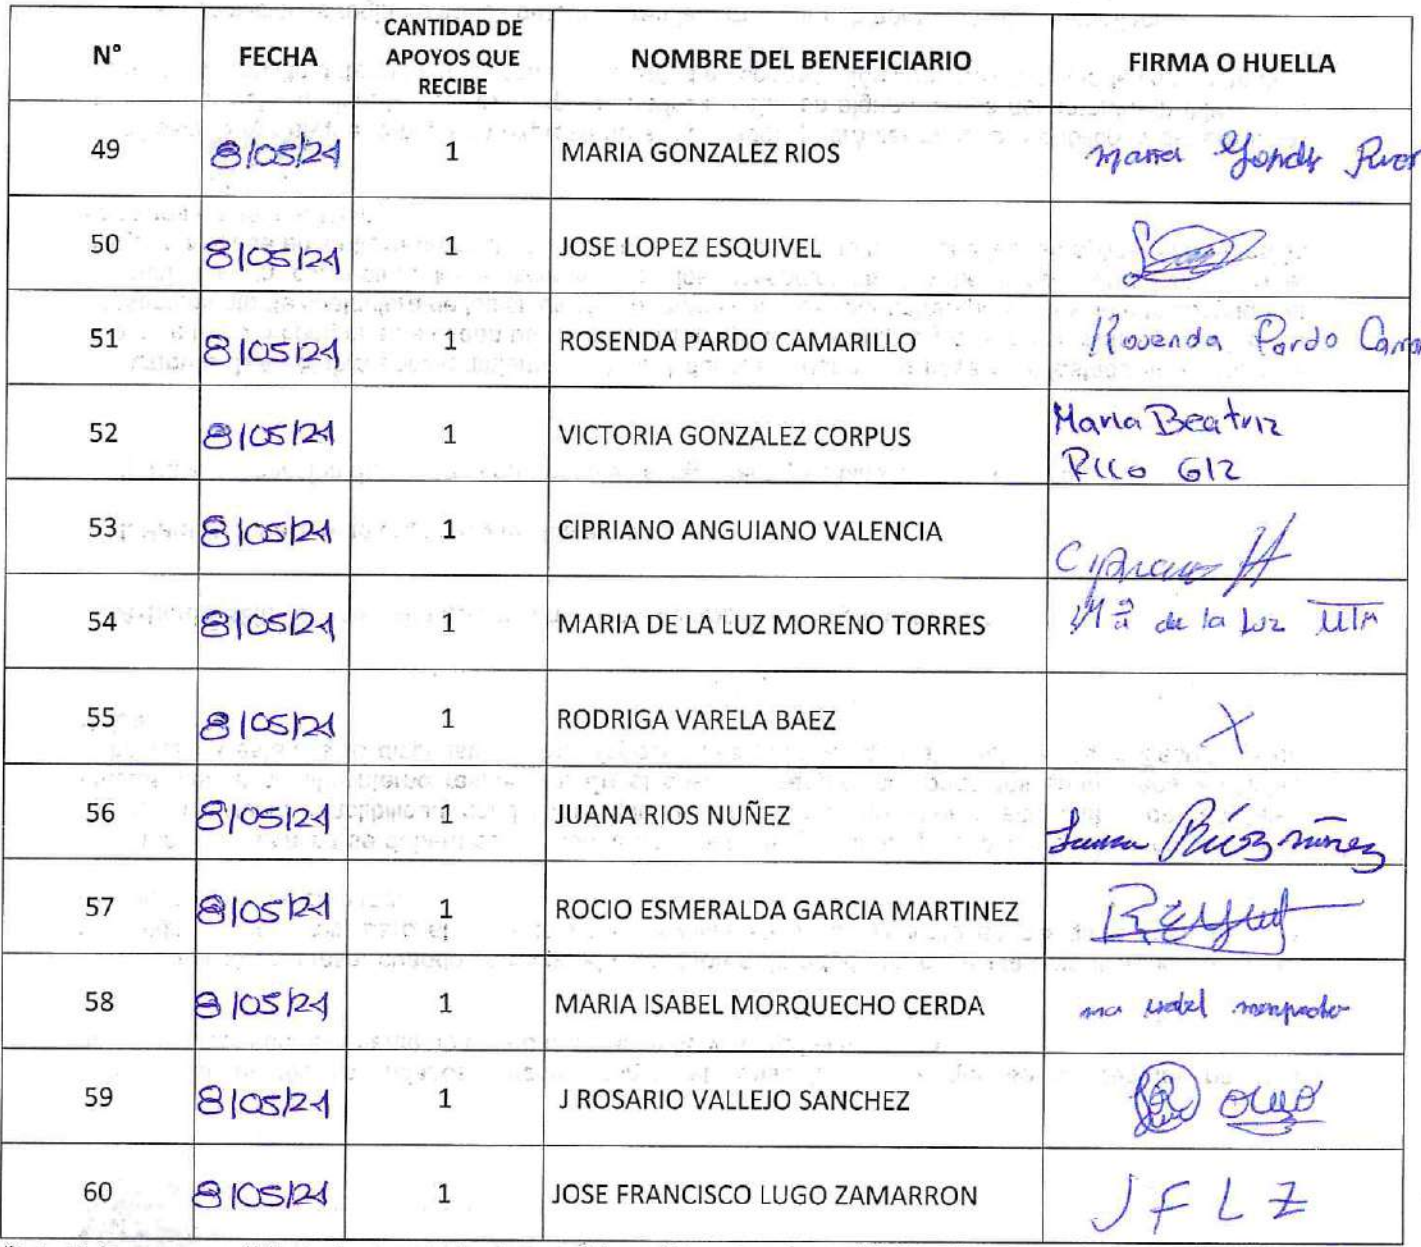 N° FECHA CANTIDAD DE APOYOS QUE RECIBE NOMBRE DEL BENEFICIARIO FIRMA O HUELLA
49 8/05/24 1 MARIA GONZALEZ RIOS
50 8/05/24 1 JOSE LOPEZ ESQUIVEL
51 8/05/24 1 ROSENDA PARDO CAMARILLO Rosenda Pardo
52 8/05/24 1 VICTORIA GONZALEZ CORPUS Maria Beatriz
Rico Glz
53 8/05/24 1 CIPRIANO ANGUIANO VALENCIA
54 8/05/24 1 MARIA DE LA LUZ MORENO TORRES Mª de la Luz
55 8/05/24 1 RODRIGA VARELA BAEZ X
56 8/05/24 1 JUANA RIOS NUÑEZ Juana Ríos núñez
57 8/05/24 1 ROCIO ESMERALDA GARCIA MARTINEZ
58 8/05/24 1 MARIA ISABEL MORQUECHO CERDA ma isabel
59 8/05/24 1 J ROSARIO VALLEJO SANCHEZ
60 8/05/24 1 JOSE FRANCISCO LUGO ZAMARRON J F L Z